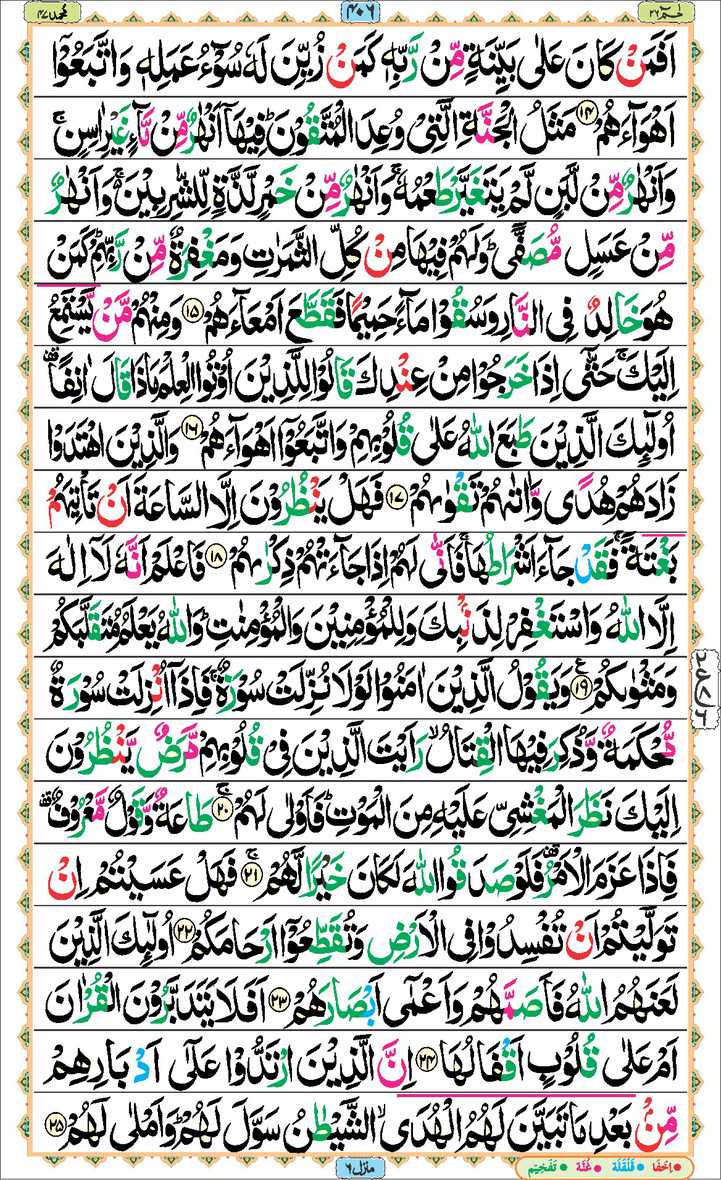 حٰمٓ ٢٦
٤٠٦
محمد ٤٧
اَفَمَنْ كَانَ عَلٰى بَيِّنَةٍ مِّنْ رَّبِّهٖ كَمَنْ زُيِّنَ لَهٗ سُوْٓءُ عَمَلِهٖ وَاتَّبَعُوْٓا
اَهْوَآءَهُمْ ﴿۱۴﴾ مَثَلُ الْجَنَّةِ الَّتِيْ وُعِدَ الْمُتَّقُوْنَ ؕ فِيْهَآ اَنْهٰرٌ مِّنْ مَّآءٍ غَيْرِ اٰسِنٍ ۚ
وَاَنْهٰرٌ مِّنْ لَّبَنٍ لَّمْ يَتَغَيَّرْ طَعْمُهٗ ۚ وَاَنْهٰرٌ مِّنْ خَمْرٍ لَّذَّةٍ لِّلشّٰرِبِيْنَ ۚ وَاَنْهٰرٌ
مِّنْ عَسَلٍ مُّصَفًّى ؕ وَلَهُمْ فِيْهَا مِنْ كُلِّ الثَّمَرٰتِ وَمَغْفِرَةٌ مِّنْ رَّبِّهِمْ ؕ كَمَنْ
هُوَ خَالِدٌ فِى النَّارِ وَسُقُوْا مَآءً حَمِيْمًا فَقَطَّعَ اَمْعَآءَهُمْ ﴿۱۵﴾ وَمِنْهُمْ مَّنْ يَّسْتَمِعُ
اِلَيْكَ ۚ حَتّٰٓى اِذَا خَرَجُوْا مِنْ عِنْدِكَ قَالُوْا لِلَّذِيْنَ اُوْتُوا الْعِلْمَ مَاذَا قَالَ اٰنِفًا ۫
اُولٰٓئِكَ الَّذِيْنَ طَبَعَ اللّٰهُ عَلٰى قُلُوْبِهِمْ وَاتَّبَعُوْٓا اَهْوَآءَهُمْ ﴿۱۶﴾ وَالَّذِيْنَ اهْتَدَوْا
زَادَهُمْ هُدًى وَّاٰتٰىهُمْ تَقْوٰىهُمْ ﴿۱۷﴾ فَهَلْ يَنْظُرُوْنَ اِلَّا السَّاعَةَ اَنْ تَاْتِيَهُمْ
بَغْتَةً ۚ فَقَدْ جَآءَ اَشْرَاطُهَا ۚ فَاَنّٰى لَهُمْ اِذَا جَآءَتْهُمْ ذِكْرٰىهُمْ ﴿۱۸﴾ فَاعْلَمْ اَنَّهٗ لَآ اِلٰهَ
اِلَّا اللّٰهُ وَاسْتَغْفِرْ لِذَنْۢبِكَ وَلِلْمُؤْمِنِيْنَ وَالْمُؤْمِنٰتِ ؕ وَاللّٰهُ يَعْلَمُ مُتَقَلَّبَكُمْ
وَمَثْوٰىكُمْ ﴿۱۹﴾ وَيَقُوْلُ الَّذِيْنَ اٰمَنُوْا لَوْلَا نُزِّلَتْ سُوْرَةٌ ۚ فَاِذَآ اُنْزِلَتْ سُوْرَةٌ
مُّحْكَمَةٌ وَّذُكِرَ فِيْهَا الْقِتَالُ ۙ رَاَيْتَ الَّذِيْنَ فِيْ قُلُوْبِهِمْ مَّرَضٌ يَّنْظُرُوْنَ
اِلَيْكَ نَظَرَ الْمَغْشِيِّ عَلَيْهِ مِنَ الْمَوْتِ ؕ فَاَوْلٰى لَهُمْ ﴿۲۰﴾ طَاعَةٌ وَّقَوْلٌ مَّعْرُوْفٌ ۫
فَاِذَا عَزَمَ الْاَمْرُ ۫ فَلَوْ صَدَقُوا اللّٰهَ لَكَانَ خَيْرًا لَّهُمْ ﴿۲۱﴾ فَهَلْ عَسَيْتُمْ اِنْ
تَوَلَّيْتُمْ اَنْ تُفْسِدُوْا فِى الْاَرْضِ وَتُقَطِّعُوْٓا اَرْحَامَكُمْ ﴿۲۲﴾ اُولٰٓئِكَ الَّذِيْنَ
لَعَنَهُمُ اللّٰهُ فَاَصَمَّهُمْ وَاَعْمٰٓى اَبْصَارَهُمْ ﴿۲۳﴾ اَفَلَا يَتَدَبَّرُوْنَ الْقُرْاٰنَ
اَمْ عَلٰى قُلُوْبٍ اَقْفَالُهَا ﴿۲۴﴾ اِنَّ الَّذِيْنَ ارْتَدُّوْا عَلٰٓى اَدْبَارِهِمْ
مِّنْۢ بَعْدِ مَا تَبَيَّنَ لَهُمُ الْهُدَى ۙ الشَّيْطٰنُ سَوَّلَ لَهُمْ ؕ وَاَمْلٰى لَهُمْ ﴿۲۵﴾
منزل ٦
اِخْفَا قَلْقَلَة غُنَّة تَفْخِيْم